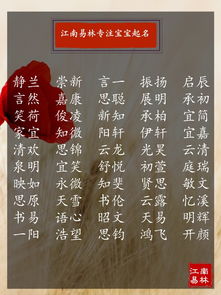 江南易林专注宝宝起名
静兰 崇新 言一 振扬 启辰
言然 嘉康 思聪 展明 承初
笑荷 俊凌 承 宜简
家宜 知微 轩 轩 君嘉
清欢 思锦 云龙 光 云清
泉明 宜笑 舒悦 庭瑞
映如 永微 知斐 贤 敏文
思原 天雪 伦 思云 忆溪
书易 语心 昭文 天易 明辉
一阳 浩望 思钧 鸿飞 开颜
江南
易林